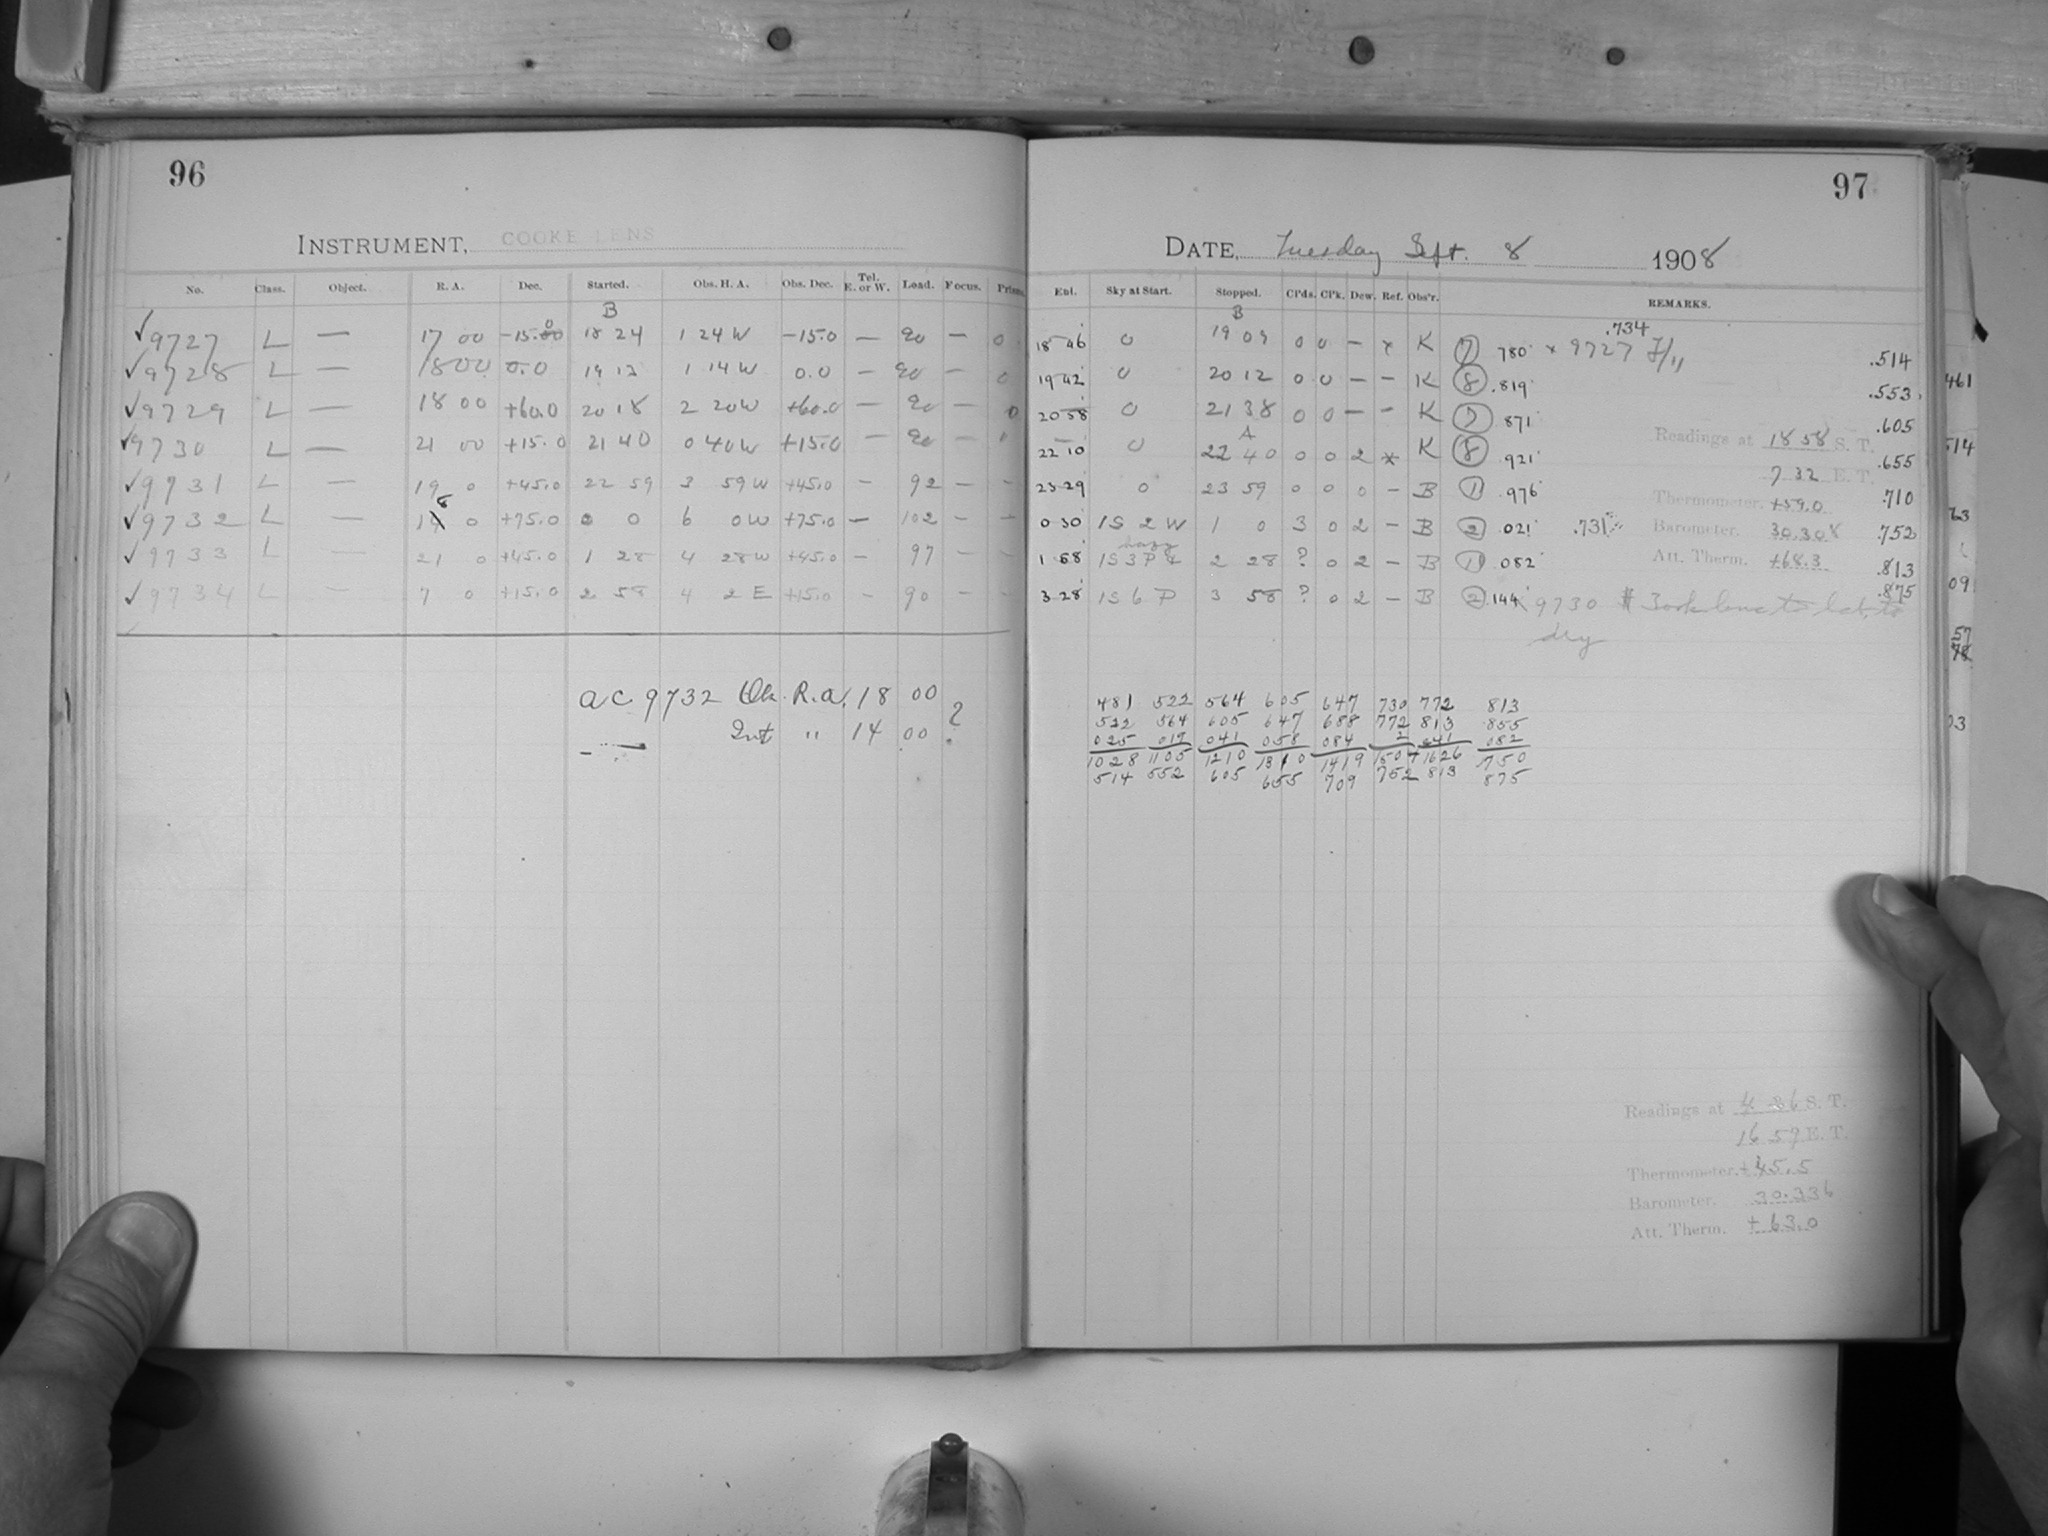 96
INSTRUMENT, COOKE LENS
No. Class. Object. R. A. Dec. Started. Obs. H. A. Obs. Dec. Tel. E. or W. Load. Focus. Prisms
B
✓9727 L — 17 00 −15.0 18 24 1 24 W −15.0 — 90 — 0
✓9728 L — 18 00 0.0 19 12 1 14 W 0.0 — 90 — 0
✓9729 L — 18 00 +60.0 20 18 2 20 W +60.0 — 90 — 0
✓9730 L — 21 00 +15.0 21 40 0 40 W +15.0 — 90 — 0
✓9731 L — 19 0 +45.0 22 59 3 59 W +45.0 — 92 — —
✓9732 L — 18 0 +75.0 0 0 6 0 W +75.0 — 102 — —
✓9733 L — 21 0 +45.0 1 28 4 28 W +45.0 — 97 — —
✓9734 L — 7 0 +15.0 2 58 4 2 E +15.0 — 90 — —
AC 9732 Ok. R.A. 18 00
?
Int " 14 00
97
DATE, Tuesday Sept. 8 1908
Epl. Sky at Start. Stopped. Cl'ds. Cl'k. Dew. Ref. Obs'r. REMARKS.
B
18 46 0 19 09 0 0 — x K (7) .780 x 9727 F/11 .734 .514
19 42 0 20 12 0 0 — — K (8) .819 .553
20 58 0 21 38 0 0 — — K (7) .871 .605
A
22 10 0 22 40 0 0 2 * K (8) .921 .655
23 29 0 23 59 0 0 0 — B (1) .976 .710
0 30 1S 2 W 1 0 3 0 2 — B (2) .021 .731 .752
hazy
1 58 1S 3 P 2 28 ? 0 2 — B (1) .082 .813
3 28 1S 6 P 3 58 ? 0 2 — B (2) .144 .875
Readings at 18 58 S. T.
7 32 E. T.
Thermometer. +59.0
Barometer. 30.308
Att. Therm. +68.3
9730 Took lens to lab. to
dry
481 522 564 605 647 730 772 813
522 564 605 647 688 772 813 855
025 019 041 058 084 2 041 082
1028 1105 1210 1310 1419 1504 1626 1750
514 552 605 655 709 752 813 875
Readings at 4 36 S. T.
16 59 E. T.
Thermometer. +45.5
Barometer. 30.336
Att. Therm. +63.0